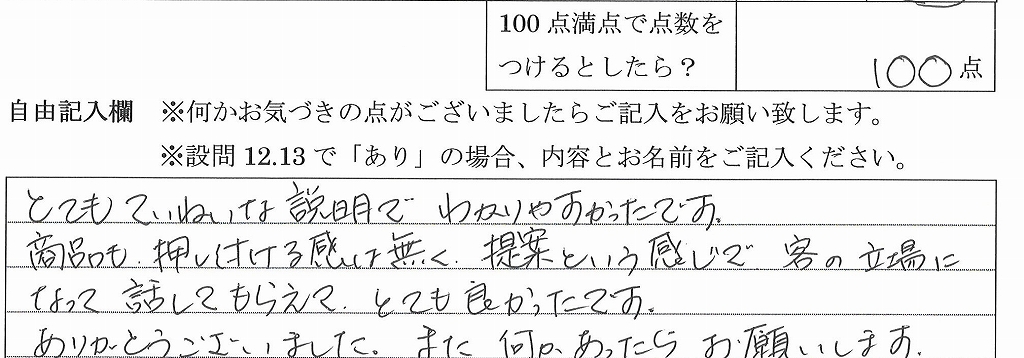 100 点満点で点数を
つけるとしたら？
100 点
自由記入欄 ※何かお気づきの点がございましたらご記入をお願い致します。
※設問 12.13 で「あり」の場合、内容とお名前をご記入ください。
とてもていねいな説明で わかりやすかったです。
商品も、押し付ける感は無く、提案という感じで 客の立場に
なって 話してもらえて、とても良かったです。
ありがとうございました。また 何か あったら お願いします。